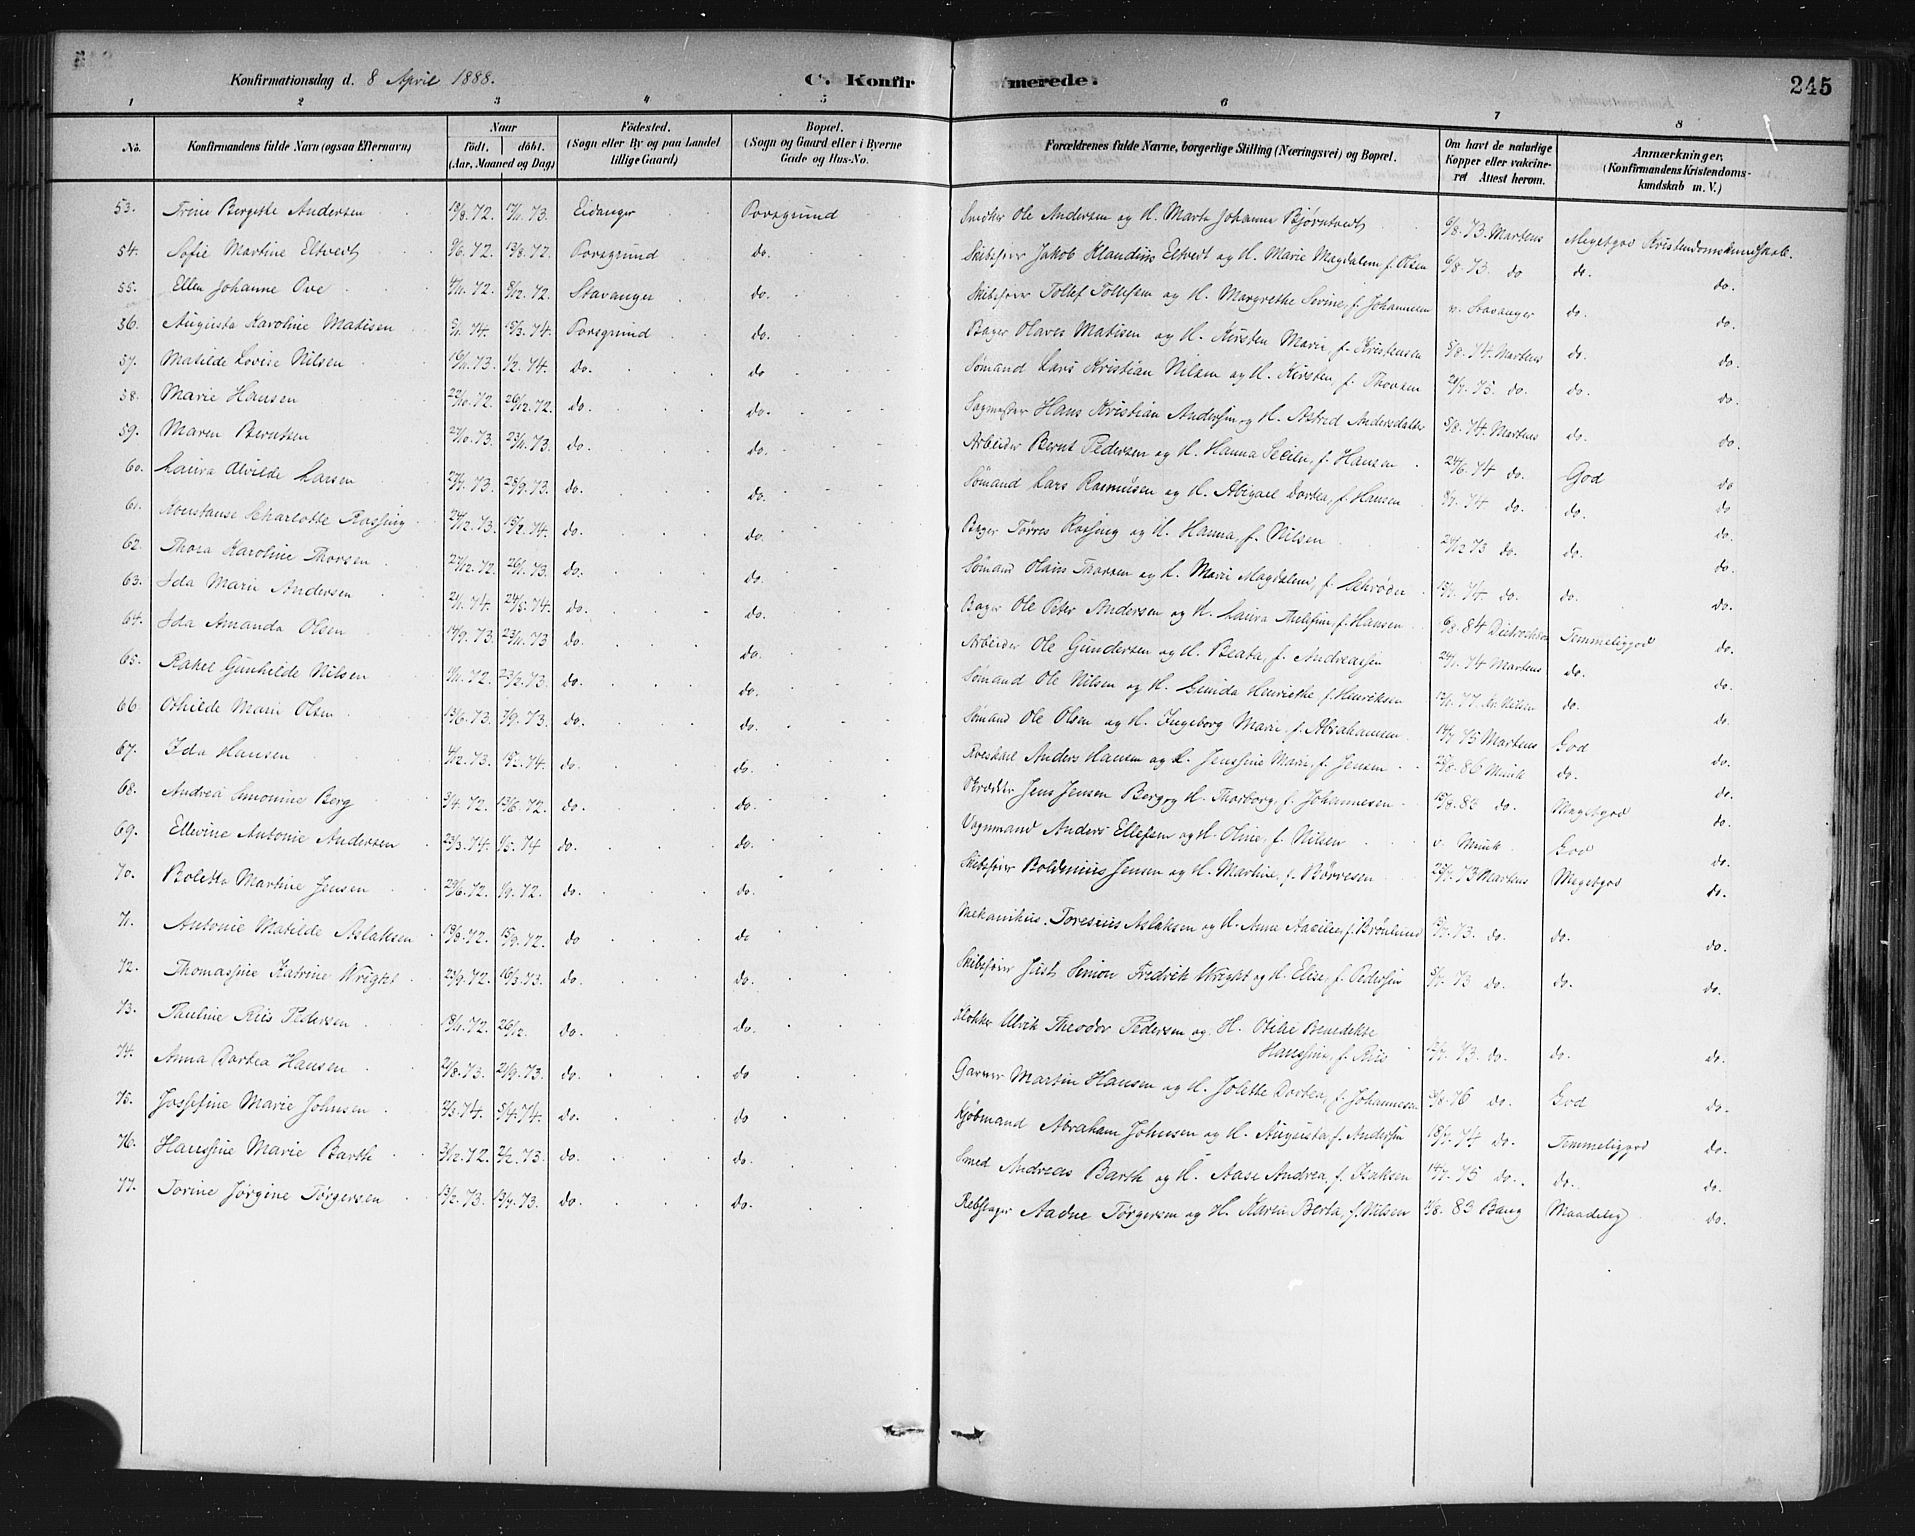 Konfirmationsdag d. 8 April 1888. C. Konfirmerede. 245
1 2 3 4 5 6 7 8
No. Konfirmandens fulde Navn (ogsaa Efternavn) Naar födt. döbt. (Aar, Maaned og Dag) Födested. (Sogn eller By og paa Landet tillige Gaard) Bopæl. (Sogn og Gaard eller i Byerne Gade og Hus-No. Forældrenes fulde Navne, borgerlige Stilling (Næringsvei) og Bopæl. Om havt de naturlige Kopper eller vakcineret Attest herom. Anmærkninger, (Konfirmandens Kristendomskundskab m. V.)
53. Trine Bergette Andersen 72. 73. Eidanger Porsgrund Snedker Ole Andersen og H. Marta Johanne Bjørntvedt 6/8. 73. Martens Megetgod Kristendomskundskab.
54. Sofie Martine Eltvedt 9/6. 72. 18/8. 72. Porsgrund do. Skibsfører Jakob Klaudius Eltvedt og H. Marie Magdalene f. Olsen 6/8. 73. do do. do.
55. Ellen Johanne Ove 4/11. 72. 8/12. 72. Stavanger do. Skibsfører Tollef Tollefsen og H. Margrethe Serine, f. Johannesen v. Stavanger do. do.
56. Augusta Karoline Matisen 74. 15/3. 74. Porsgrund do. Bager Olaves Matisen og H. Kirsten Marie, f. Kristensen 5/8. 74. Martens do. do.
57. Matilde Lovise Nilsen 73. 1/2. 74. do. do Sømand Lars Kristian Nilsen og H. Kirsten, f. Thorsen 75. do do. do.
58. Marie Hansen 22/10. 72. 26/12. 72. do. do. Sagmester Hans Kristian Andersen og H. Astrid Andersdatter 5/8. 74. Martens do. do.
59. Maren Berntsen 27/10. 73. 23/11. 73. do. do. Arbeider Bernt Pedersen og H. Hanna Secilie, f. Hansen 24/6. 74 do. God do
60. Laura Alvilde Larsen 73. 28/9. 73. do. do. Sømand Lars Rasmusen og H. Abigael Dortea, f. Hansen 74 do. do. do
61. Konstanse Scharlotte Rossing 24/12. 73. 15/2. 74. do. do. Bager Tørres Rossing og H. Hanna, f. Nilsen 73 do. do. do.
62. Thora Karoline Thorsen 27/12. 72. 26/1. 73. do. do. Sømand Olaus Thorsen og H. Marie Magdalene, f. Schrøder 74. do. do. do.
63. Ida Marie Andersen 74. 24/5. 74. do. do. Bager Ole Peter Andersen og H. Laura Thelefine, f. Hansen 84 Dietrichson Temmeliggod do.
64. Ida Amanda Olsen 14/9. 73. 23/11. 73 do. do. Arbeider Ole Gundersen og H. Beata, f. Andreassen 74 Martens do. do.
65. Rakel Gunhilde Nilsen 72. 23/3. 73. do. do. Sømand Ole Nilsen og H. Gunda Henriette f. Henriksen 77. Nilsen do. do.
66. Othilde Marie Olsen 13/6. 73. 7/9. 73. do. do. Sømand Ole Olsen og H. Ingeborg Marie, f. Abrahamsen 75 Martens God do.
67. Ida Hansen 4/12. 73. 74. do. do. Anders Hansen og H. Jenssine Marie, f. Jensen 86 Munk do. do.
68. Andrea Simonine Berg 3/4. 72. 13/6. 72. do. do. Jens Jensen Berg og H. Thorborg, f. Johannesen 83 do. Megetgod do.
69. Ellevine Antonie Andersen 23/3. 74. 1/5. 74 do. do. Vognmand Anders Ellefsen og H. Oline, f. Nilsen v. Munk God do.
70. Boletta Martine Jensen 29/6. 72. 72. do. do. Skibsfører Boldevius Jensen og H. Martine, f. Børresen 73 Martens Megetgod do.
71. Antonie Matilde Aslaksen 72. 15/9. 72. do do Mekanikus. Toresius Aslaksen og H. Anne Aasilie, f. Brønlund 73. do. do. do.
72. Thomassine Katrine Wright 23/9. 72. 16/3. 73. do. do. Skibsfører Just Simon Fredrik Wright og H. Elise, f. Pedersen 73 do. do. do.
73. Pauline Riis Pedersen 72. 26/12. do. do. Klokker Ulrik Theodor Pedersen og H. Otilie Benedikte
Hanssine, f. Riis 73. do. do. do.
74. Anna Dortea Hansen 2/8. 73. 21/9. 73. do. do Garver Martin Hansen og H. Jolette Dortea, f. Johannesen 76 do. God do.
75. Jossefine Marie Johnsen 2/3. 74. 5/4. 74. do. do Kjøbmand Abraham Johnsen og H. Augusta, f. Andersen 74 do. Temmeliggod do.
76. Hanssine Marie Barth 3/12. 72. 2/2. 73. do. do. Smed Andreas Barth og H. Aase Andrea, f. Isaksen 75 do. do. do.
77. Torine Jørgine Torgersen 13/2. 73. 13/4. 73. do. do. Rebslager Aadne Torgersen og H. Karen Berta, f. Nilsen 83 Bang Maadelig do.